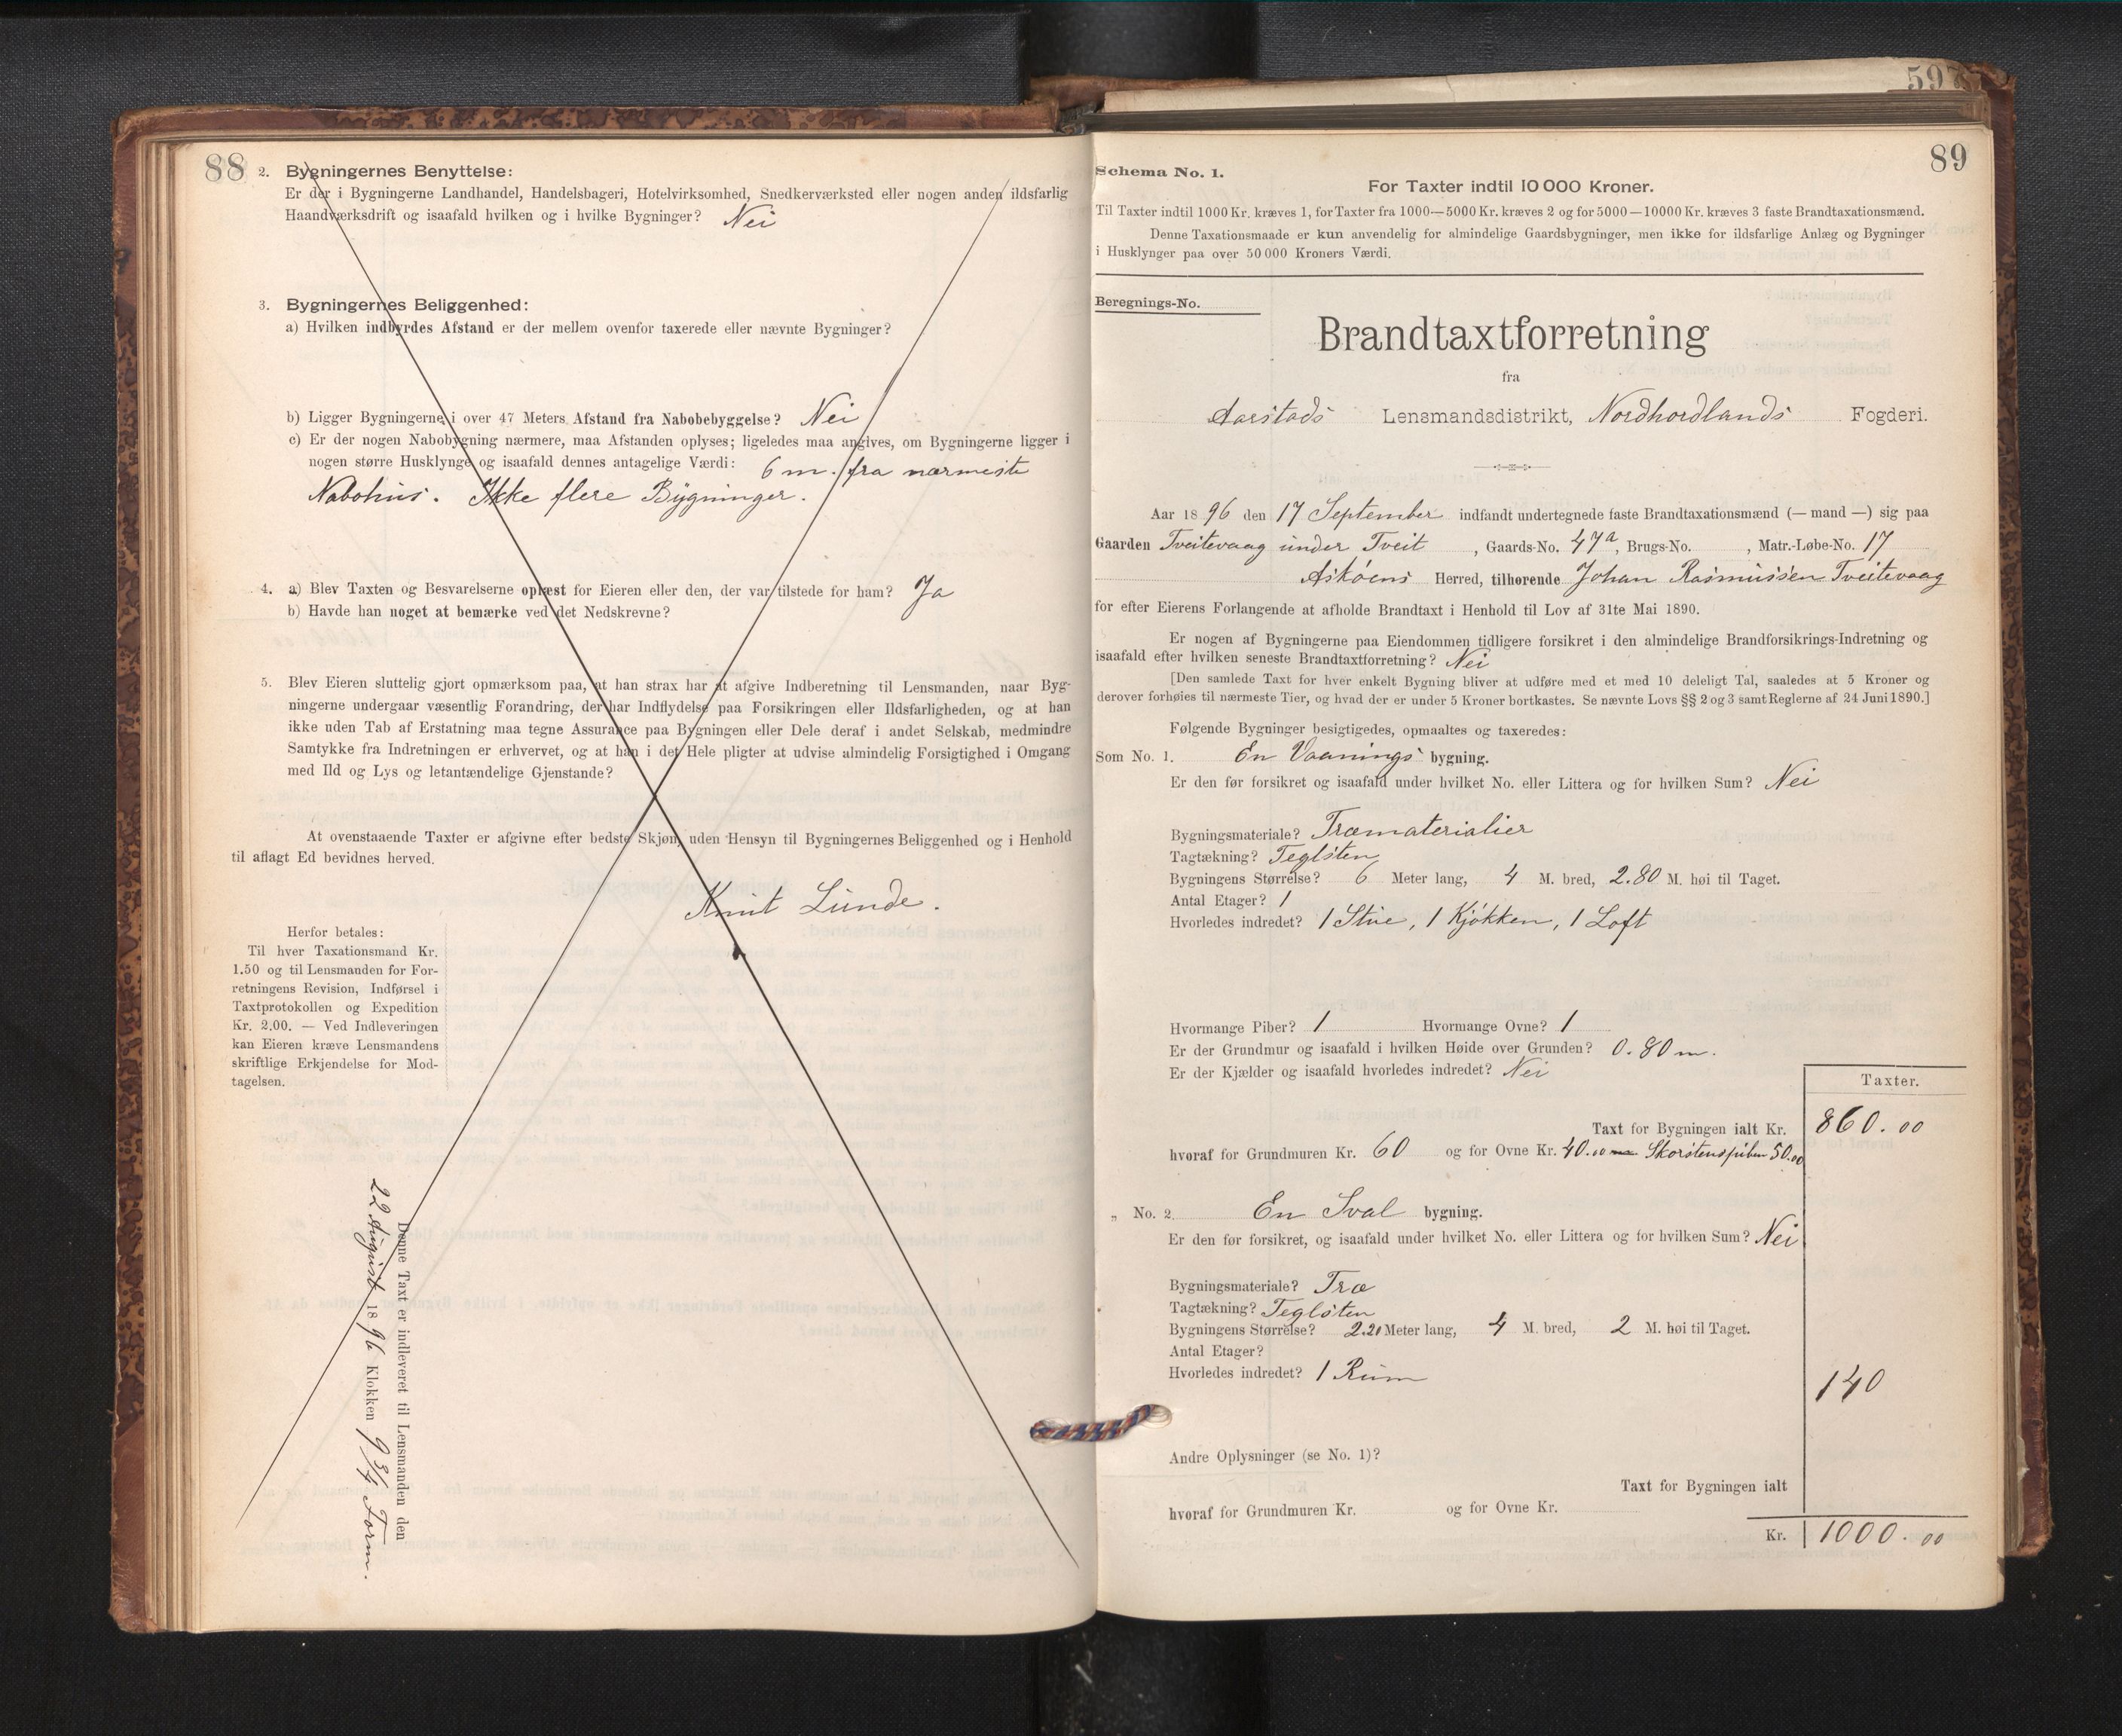 88
2. Bygningernes Benyttelse:
Er der i Bygningerne Landhandel, Handelsbageri, Hotelvirksomhed, Snedkerværksted eller nogen anden ildsfarlig
Haandværksdrift og isaafald hvilken og i hvilke Bygninger? Nei
3. Bygningernes Beliggenhed:
a) Hvilken indbyrdes Afstand er der mellem ovenfor taxerede eller nævnte Bygninger?
b) Ligger Bygningerne i over 47 Meters Afstand fra Nabobebyggelse? Nei
c) Er der nogen Nabobygning nærmere, maa Afstanden oplyses; ligeledes maa angives, om Bygningerne ligger i
nogen større Husklynge og isaafald dennes antagelige Værdi: 6 m. fra nærmeste
Nabohus. Ikke flere Bygninger.
4. a) Blev Taxten og Besvarelserne oplæst for Eieren eller den, der var tilstede for ham? Ja
b) Havde han noget at bemærke ved det Nedskrevne?
5. Blev Eieren sluttelig gjort opmærksom paa, at han strax har at afgive Indberetning til Lensmanden, naar Byg-
ningerne undergaar væsentlig Forandring, der har Indflydelse paa Forsikringen eller Ildsfarligheden, og at han
ikke uden Tab af Erstatning maa tegne Assurance paa Bygningen eller Dele deraf i andet Selskab, medmindre
Samtykke fra Indretningen er erhvervet, og at han i det Hele pligter at udvise almindelig Forsigtighed i Omgang
med Ild og Lys og letantændelige Gjenstande?
At ovenstaaende Taxter er afgivne efter bedste Skjøn, uden Hensyn til Bygningernes Beliggenhed og i Henhold
til aflagt Ed bevidnes herved.
Knut Lunde.
Herfor betales:
Til hver Taxationsmand Kr.
1.50 og til Lensmanden for For-
retningens Revision, Indførsel i
Taxtprotokollen og Expedition
Kr. 2.00. — Ved Indleveringen
kan Eieren kræve Lensmandens
skriftlige Erkjendelse for Mod-
tagelsen.
Denne Taxt er indleveret til Lensmanden den
22 August 1896 Klokken 9 3/4 Form.
597
89
Schema No. 1.
For Taxter indtil 10 000 Kroner.
Til Taxter indtil 1000 Kr. kræves 1, for Taxter fra 1000—5000 Kr. kræves 2 og for 5000—10000 Kr. kræves 3 faste Brandtaxationsmænd.
Denne Taxationsmaade er kun anvendelig for almindelige Gaardsbygninger, men ikke for ildsfarlige Anlæg og Bygninger
i Husklynger paa over 50 000 Kroners Værdi.
Beregnings-No.
Brandtaxtforretning
fra
Aarstads Lensmandsdistrikt, Nordhordlands Fogderi.
Aar 1896 den 17 September indfandt undertegnede faste Brandtaxationsmænd (— mand —) sig paa
Gaarden Tveitevaag under Tveit, Gaards-No. 47a, Brugs-No. , Matr.-Løbe-No. 17
Askøens Herred, tilhørende Johan Rasmussen Tveitevaag
for efter Eierens Forlangende at afholde Brandtaxt i Henhold til Lov af 31te Mai 1890.
Er nogen af Bygningerne paa Eiendommen tidligere forsikret i den almindelige Brandforsikrings-Indretning og
isaafald efter hvilken seneste Brandtaxtforretning? Nei
[Den samlede Taxt for hver enkelt Bygning bliver at udføre med et med 10 deleligt Tal, saaledes at 5 Kroner og
derover forhøies til nærmeste Tier, og hvad der er under 5 Kroner bortkastes. Se nævnte Lovs §§ 2 og 3 samt Reglerne af 24 Juni 1890.]
Følgende Bygninger besigtigedes, opmaaltes og taxeredes:
Som No. 1. En Vaanings bygning.
Er den før forsikret og isaafald under hvilket No. eller Littera og for hvilken Sum? Nei
Bygningsmateriale? Træmaterialier
Tagtækning? Teglsten
Bygningens Størrelse? 6 Meter lang, 4 M. bred, 2.80 M. høi til Taget.
Antal Etager? 1
Hvorledes indredet? 1 Stue, 1 Kjøkken, 1 Loft
Hvormange Piber? 1 Hvormange Ovne? 1
Er der Grundmur og isaafald i hvilken Høide over Grunden? 0.80 m.
Er der Kjælder og isaafald hvorledes indredet? Nei
Taxter.
Taxt for Bygningen ialt Kr. 860.00
hvoraf for Grundmuren Kr. 60 og for Ovne Kr. 40.00 Skorstenspiben 50.00
„ No. 2. En Sval bygning.
Er den før forsikret, og isaafald under hvilket No. eller Littera og for hvilken Sum? Nei
Bygningsmateriale? Træ
Tagtækning? Teglsten
Bygningens Størrelse? 2.20 Meter lang, 4 M. bred, 2 M. høi til Taget.
Antal Etager?
Hvorledes indredet? 1 Rum
140
Andre Oplysninger (se No. 1)?
Taxt for Bygningen ialt
hvoraf for Grundmuren Kr. og for Ovne Kr.
Kr. 1000.00